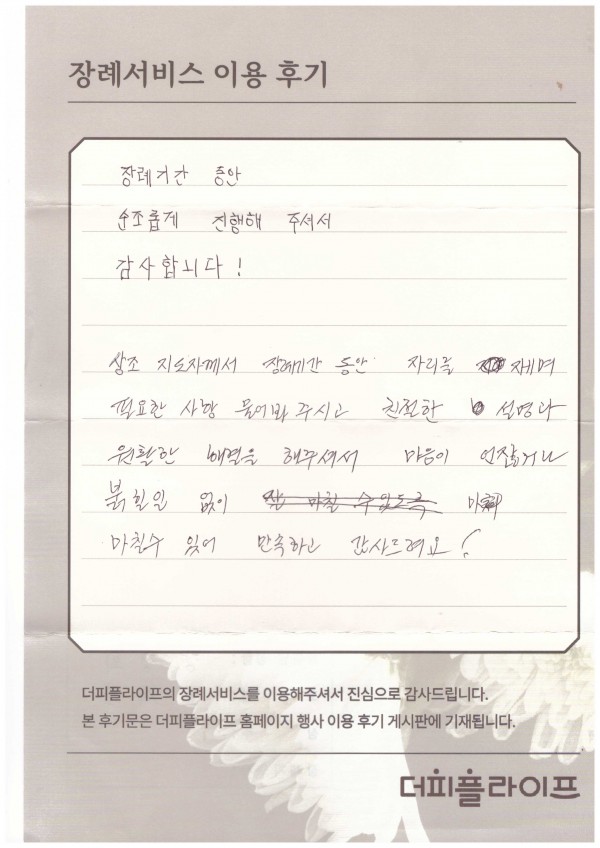 장례서비스 이용 후기
장례기간 동안
순조롭게 진행해 주셔서
감사합니다!
상조 지도자께서 장례기간 동안 자리를 지세며
필요한 사항 물어봐 주시고 친절한 설명과
원활한 해결을 해주셔서 마음이 언짢거나
붉힐일 없이 잘 마칠 수 있도록
마칠수 있어 만속하고 감사드려요!
더피플라이프의 장례서비스를 이용해주셔서 진심으로 감사드립니다.
본 후기문은 더피플라이프 홈페이지 행사 이용 후기 게시판에 기재됩니다.
더피플라이프